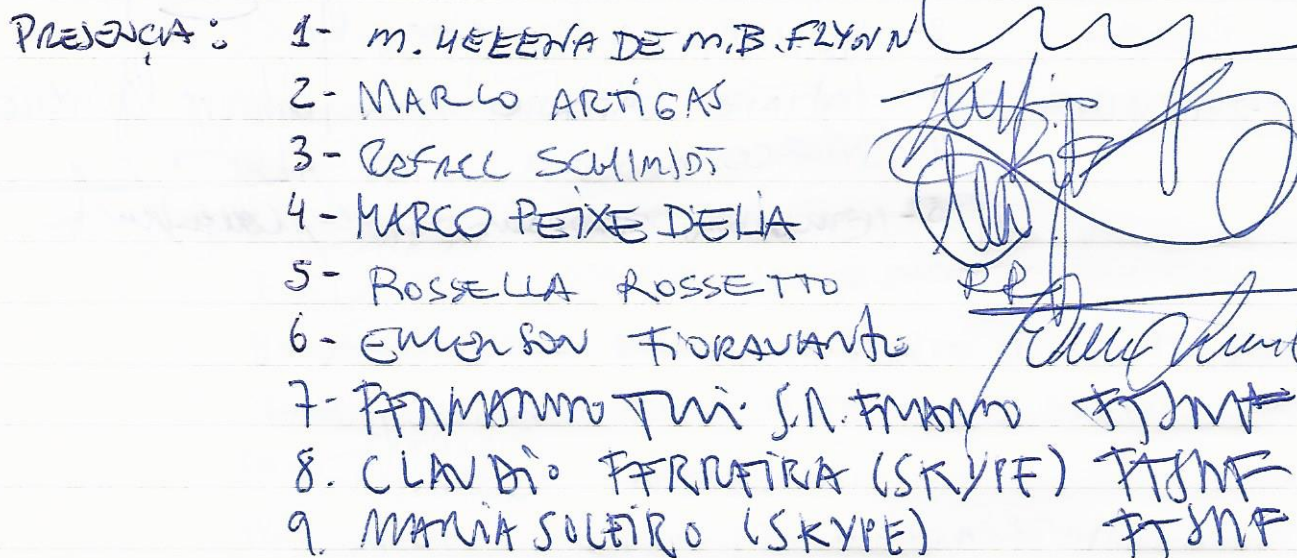 PRESENÇA: 1- M. HELENA DE M.B. FLYNN
2- MARCO ARTIGAS
3- RAFAEL SCHIMIDT
4- MARCO PEIXE DELIA
5- ROSSELLA ROSSETTO RR
6- EMERSON FIORAVANTE
7- FERNANDO TULI S.N. FTSNF
8. CLAUDIO FERREIRA (SKYPE) FTSNF
9. MARIA SULEIRO (SKYPE) FTSNF